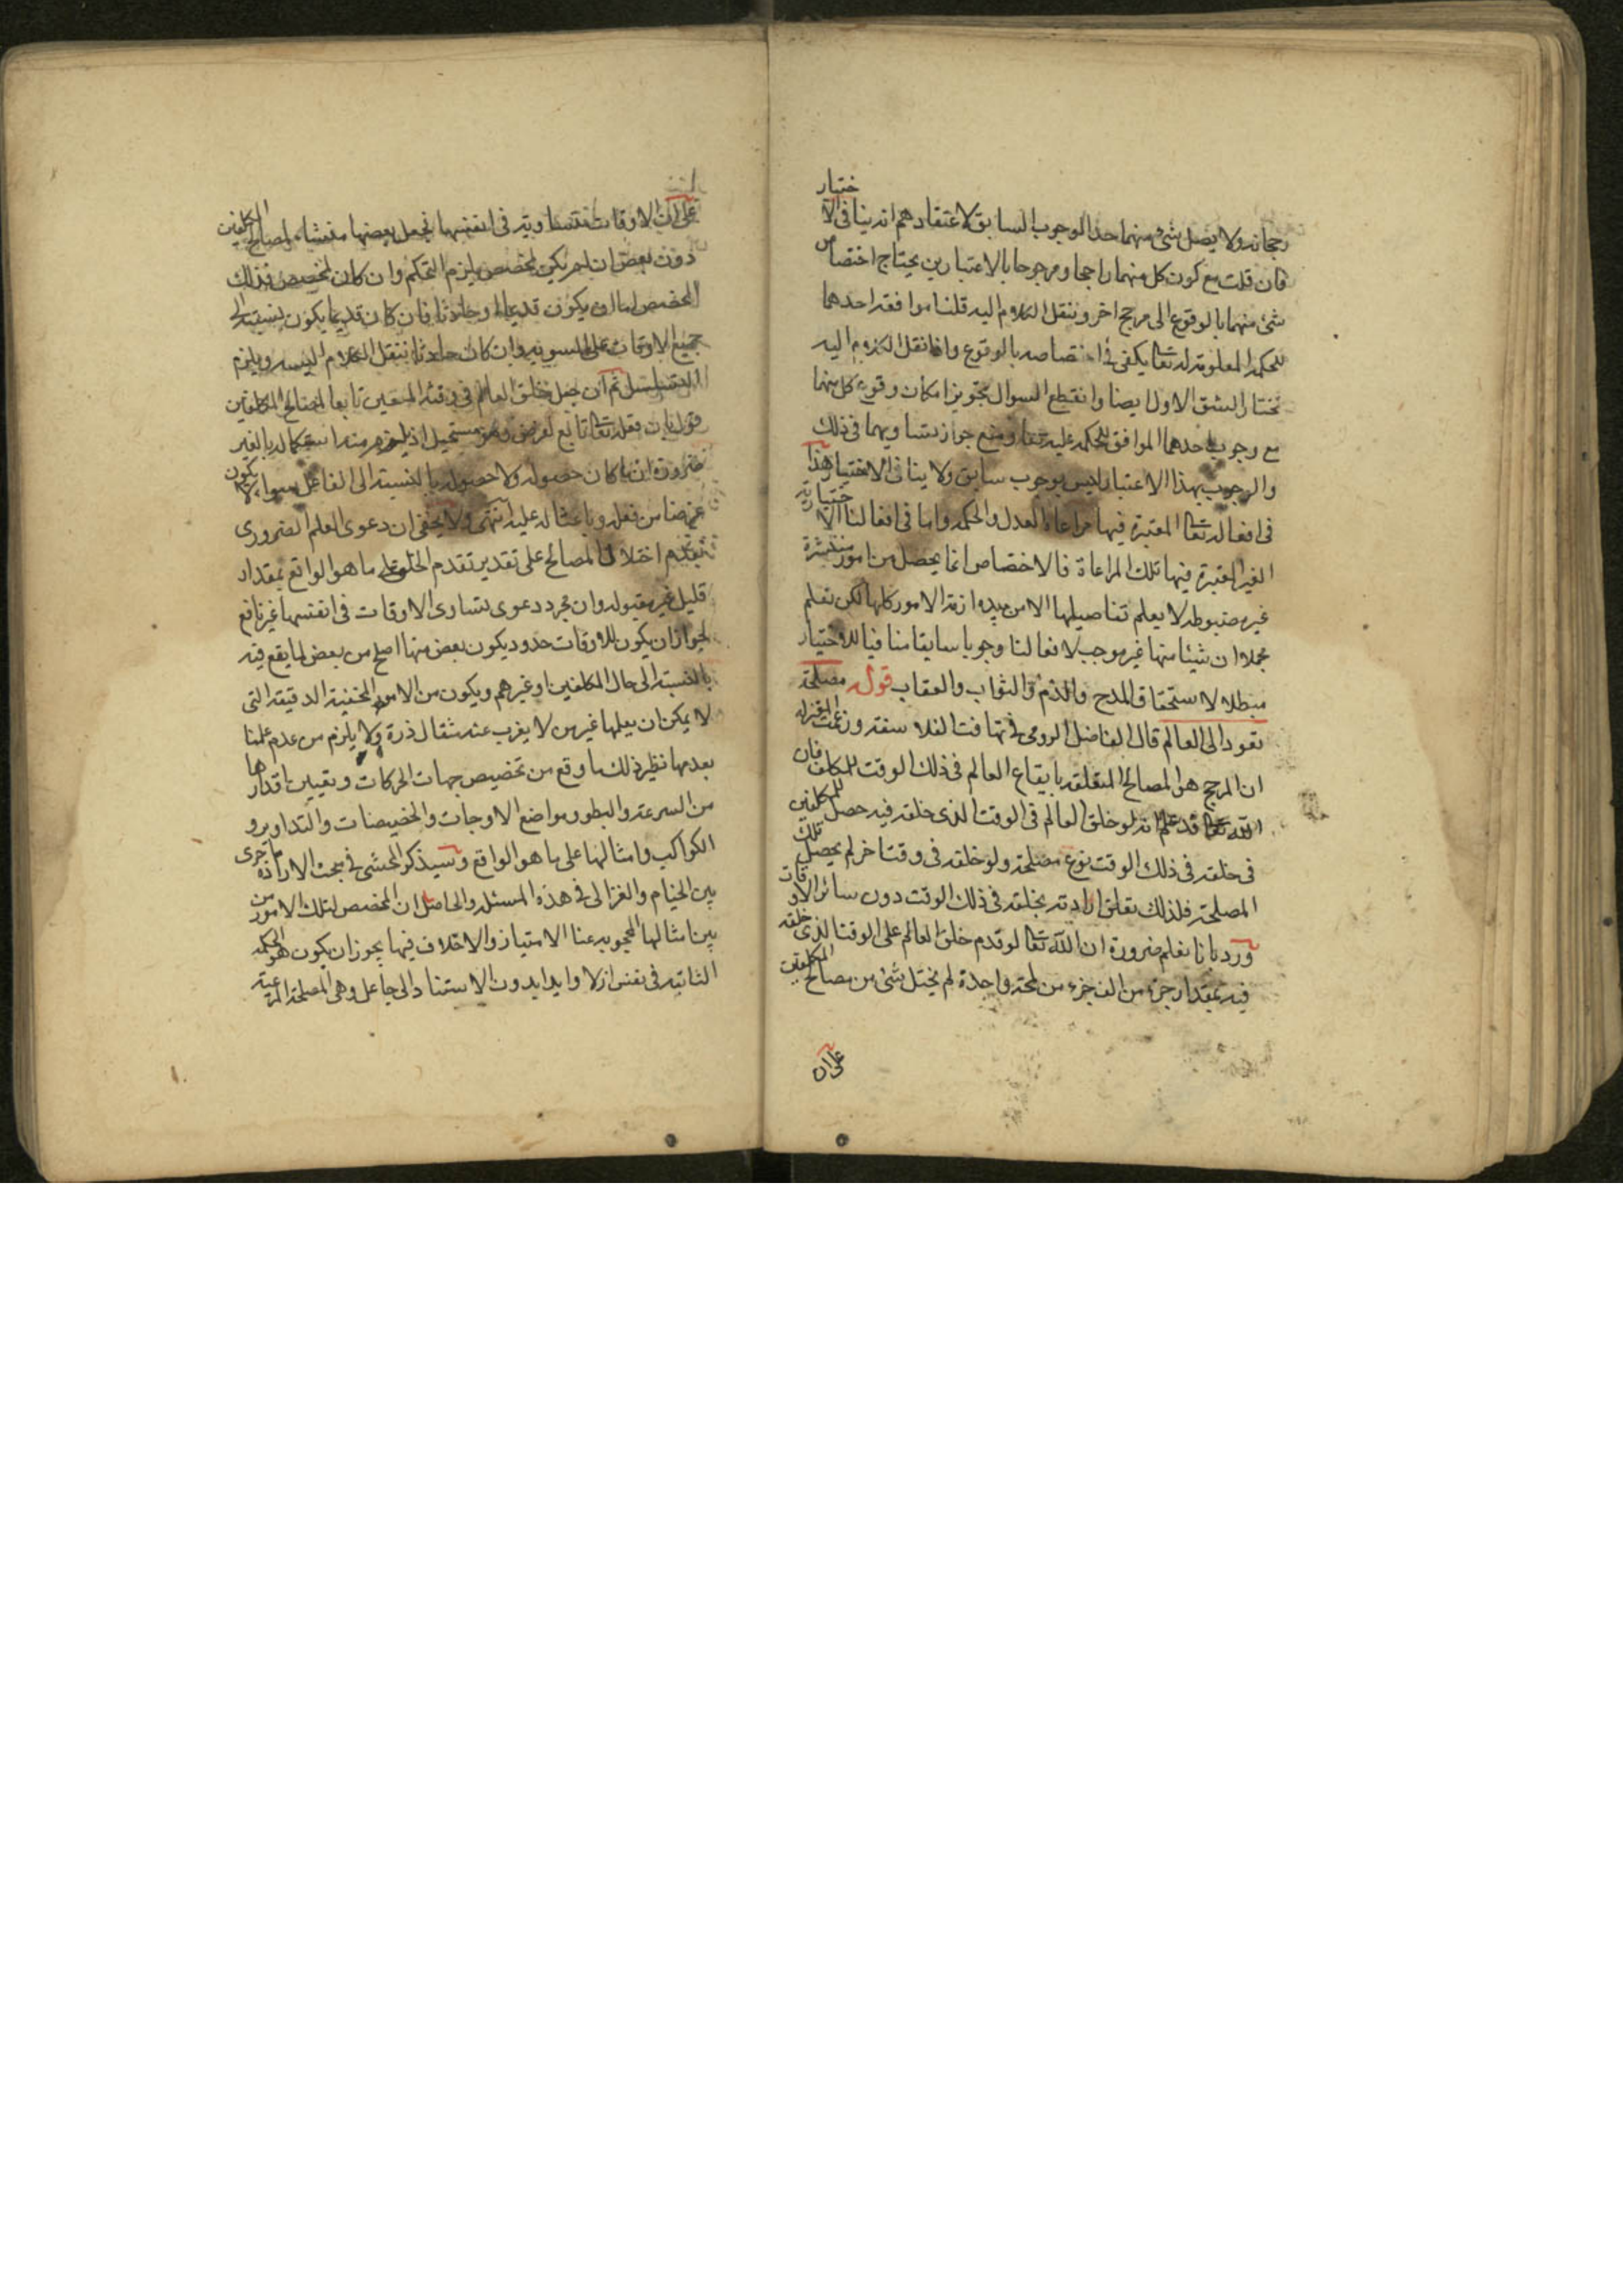 رجحانه ولا يصل شئ منهما حد الوجوب السابق لاعتقادهم انه ينافى الاختيار
فان قلت مع كون كل منهما راجحا ومرجوحا بالاعتبارين يحتاج اختصاص
شئ منهما بالوقوع الى مرجح اخر وننقل الكلام اليه قلنا موافقة احدهما
للحكمة المعلومة له تعا يكفى فى اختصاصه بالوقوع واذا نقل الكلام اليه
نختار الشق الاول ايضا وانقطع السوال بتجويز امكان وقوع كل منهما
مع وجوب احدهما الموافق للحكمة عليه تعا ومنع جواز تساويهما فى ذلك
والوجوب بهذا الاعتبار ليس بوجوب سابق ولا ينافى الاختيار هذا
فى افعاله تعا المعتبرة فيها مراعاة العدل والحكمة واما فى افعالنا الاختيارية
الغير المعتبرة فيها تلك المراعاة فالاختصاص انما يحصل من امور منتشرة
غير مضبوطة لا يعلم تفاصيلها الا من بيده ازمة الامور كلها لكن نعلم
مجملا ان شيئا منها غير موجب لافعالنا وجوبا سابقا منافيا للاختيار
مبطلا لاستحقاق المدح والذم والثواب والعقاب قوله مصلحة
تعود الى العالم قال الفاضل الرومى فى تهافت الفلاسفة وزعمت المعتزلة
ان المرجح هو المصالح المتعلقة بايقاع العالم فى ذلك الوقت للمكلف فان
الله تعا قد علم انه لو خلق العالم فى الوقت الذى خلقه فيه حصل للمكلفين
فى خلقه فى ذلك الوقت نوع مصلحة ولو خلقه فى وقت اخر لم يحصل تلك
المصلحة فلذلك تعلق ارادته بخلقه فى ذلك الوقت دون سائر الاوقات
ورد بانا نعلم ضرورة ان الله تعا لو قدم خلق العالم على الوقت الذى خلقه
فيه بمقدار جزء من الف جزء من لمحة واحدة لم يختل شئ من مصالح المكلفين
على ان
على ان الاوقات متساوية فى انفسها فجعل بعضها منشاء لمصالح المكلفين
دون بعض ان لم يكن لمخصص يلزم التحكم وان كان لمخصص فذلك
المخصص اما ان يكون قديما او حادثا فان كان قديما يكون نسبته الى
جميع الاوقات على السوية وان كان حادثا ننقل الكلام اليه ويلزم
التسلسل ثم ان جعل خلق العالم فى وقته المعين تابعا لمصالح المكلفين
قول بان فعله تعا تابع لغرض وهو مستحيل اذ يلزم منه استكماله بالغير
ضرورة ان ما كان حصوله ولا حصوله بالنسبة الى الفاعل سواء لا يكون
غرضا من فعله وباعثا له عليه انتهى ولا يخفى ان دعوى العلم الضرورى
بعدم اختلال المصالح على تقدير تقدم الخلق على ما هو الواقع بمقدار
قليل غير مقبولة وان مجرد دعوى تساوى الاوقات فى انفسها غير نافع
لجواز ان يكون للاوقات حدود يكون بعض منها اصلح من بعض لما يقع فيه
بالنسبة الى حال المكلفين او غيرهم ويكون من الامور المخفية الدقيقة التى
لا يمكن ان يعلمها غير من لا يعزب عنه مثقال ذرة ولا يلزم من عدم علمنا
بعدمها نظير ذلك ما وقع من تخصيص جهات الحركات وتعيين اقدارها
من السرعة والبطوء ومواضع الاوجات والحضيضات والتداوير و
الكواكب وامثالها على ما هو الواقع وسيذكر المحشى فى بحث الارادة ما جرى
بين الخيام والغزالى فى هذه المسئلة والحاصل ان المخصص لتلك الامور من
بين امثالها المحجوبة عنا الامتياز والاختلاف فيها يجوز ان يكون هو الحكمة
الثابتة فى نفس ازلا وابدا بدون الاستناد الى جاعل وهى المصلحة المرعية